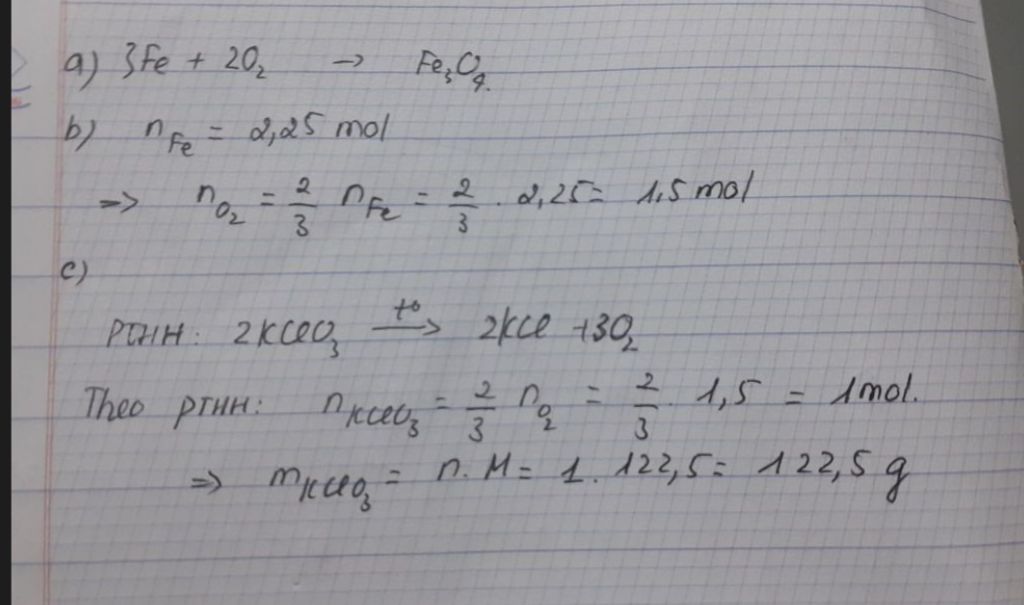 a) 3Fe + 2O₂ → Fe₃O₄.
b) n_Fe = 2,25 mol
=> n_O₂ = 2/3 n_Fe = 2/3 . 2,25 = 1,5 mol
c)
PTHH: 2KClO₃ —t°→ 2KCl + 3O₂
Theo PTHH: n_KClO₃ = 2/3 n_O₂ = 2/3 . 1,5 = 1 mol.
=> m_KClO₃ = n.M = 1. 122,5 = 122,5 g